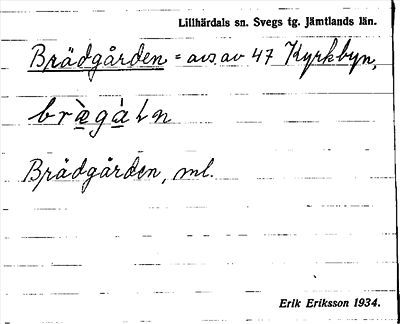 Lillhärdals sn. Svegs tg. Jämtlands län.
Brädgården = avs. av 47 Kyrkbyn,
bràgàɫn
Brädgården, ml.
Erik Eriksson 1934.